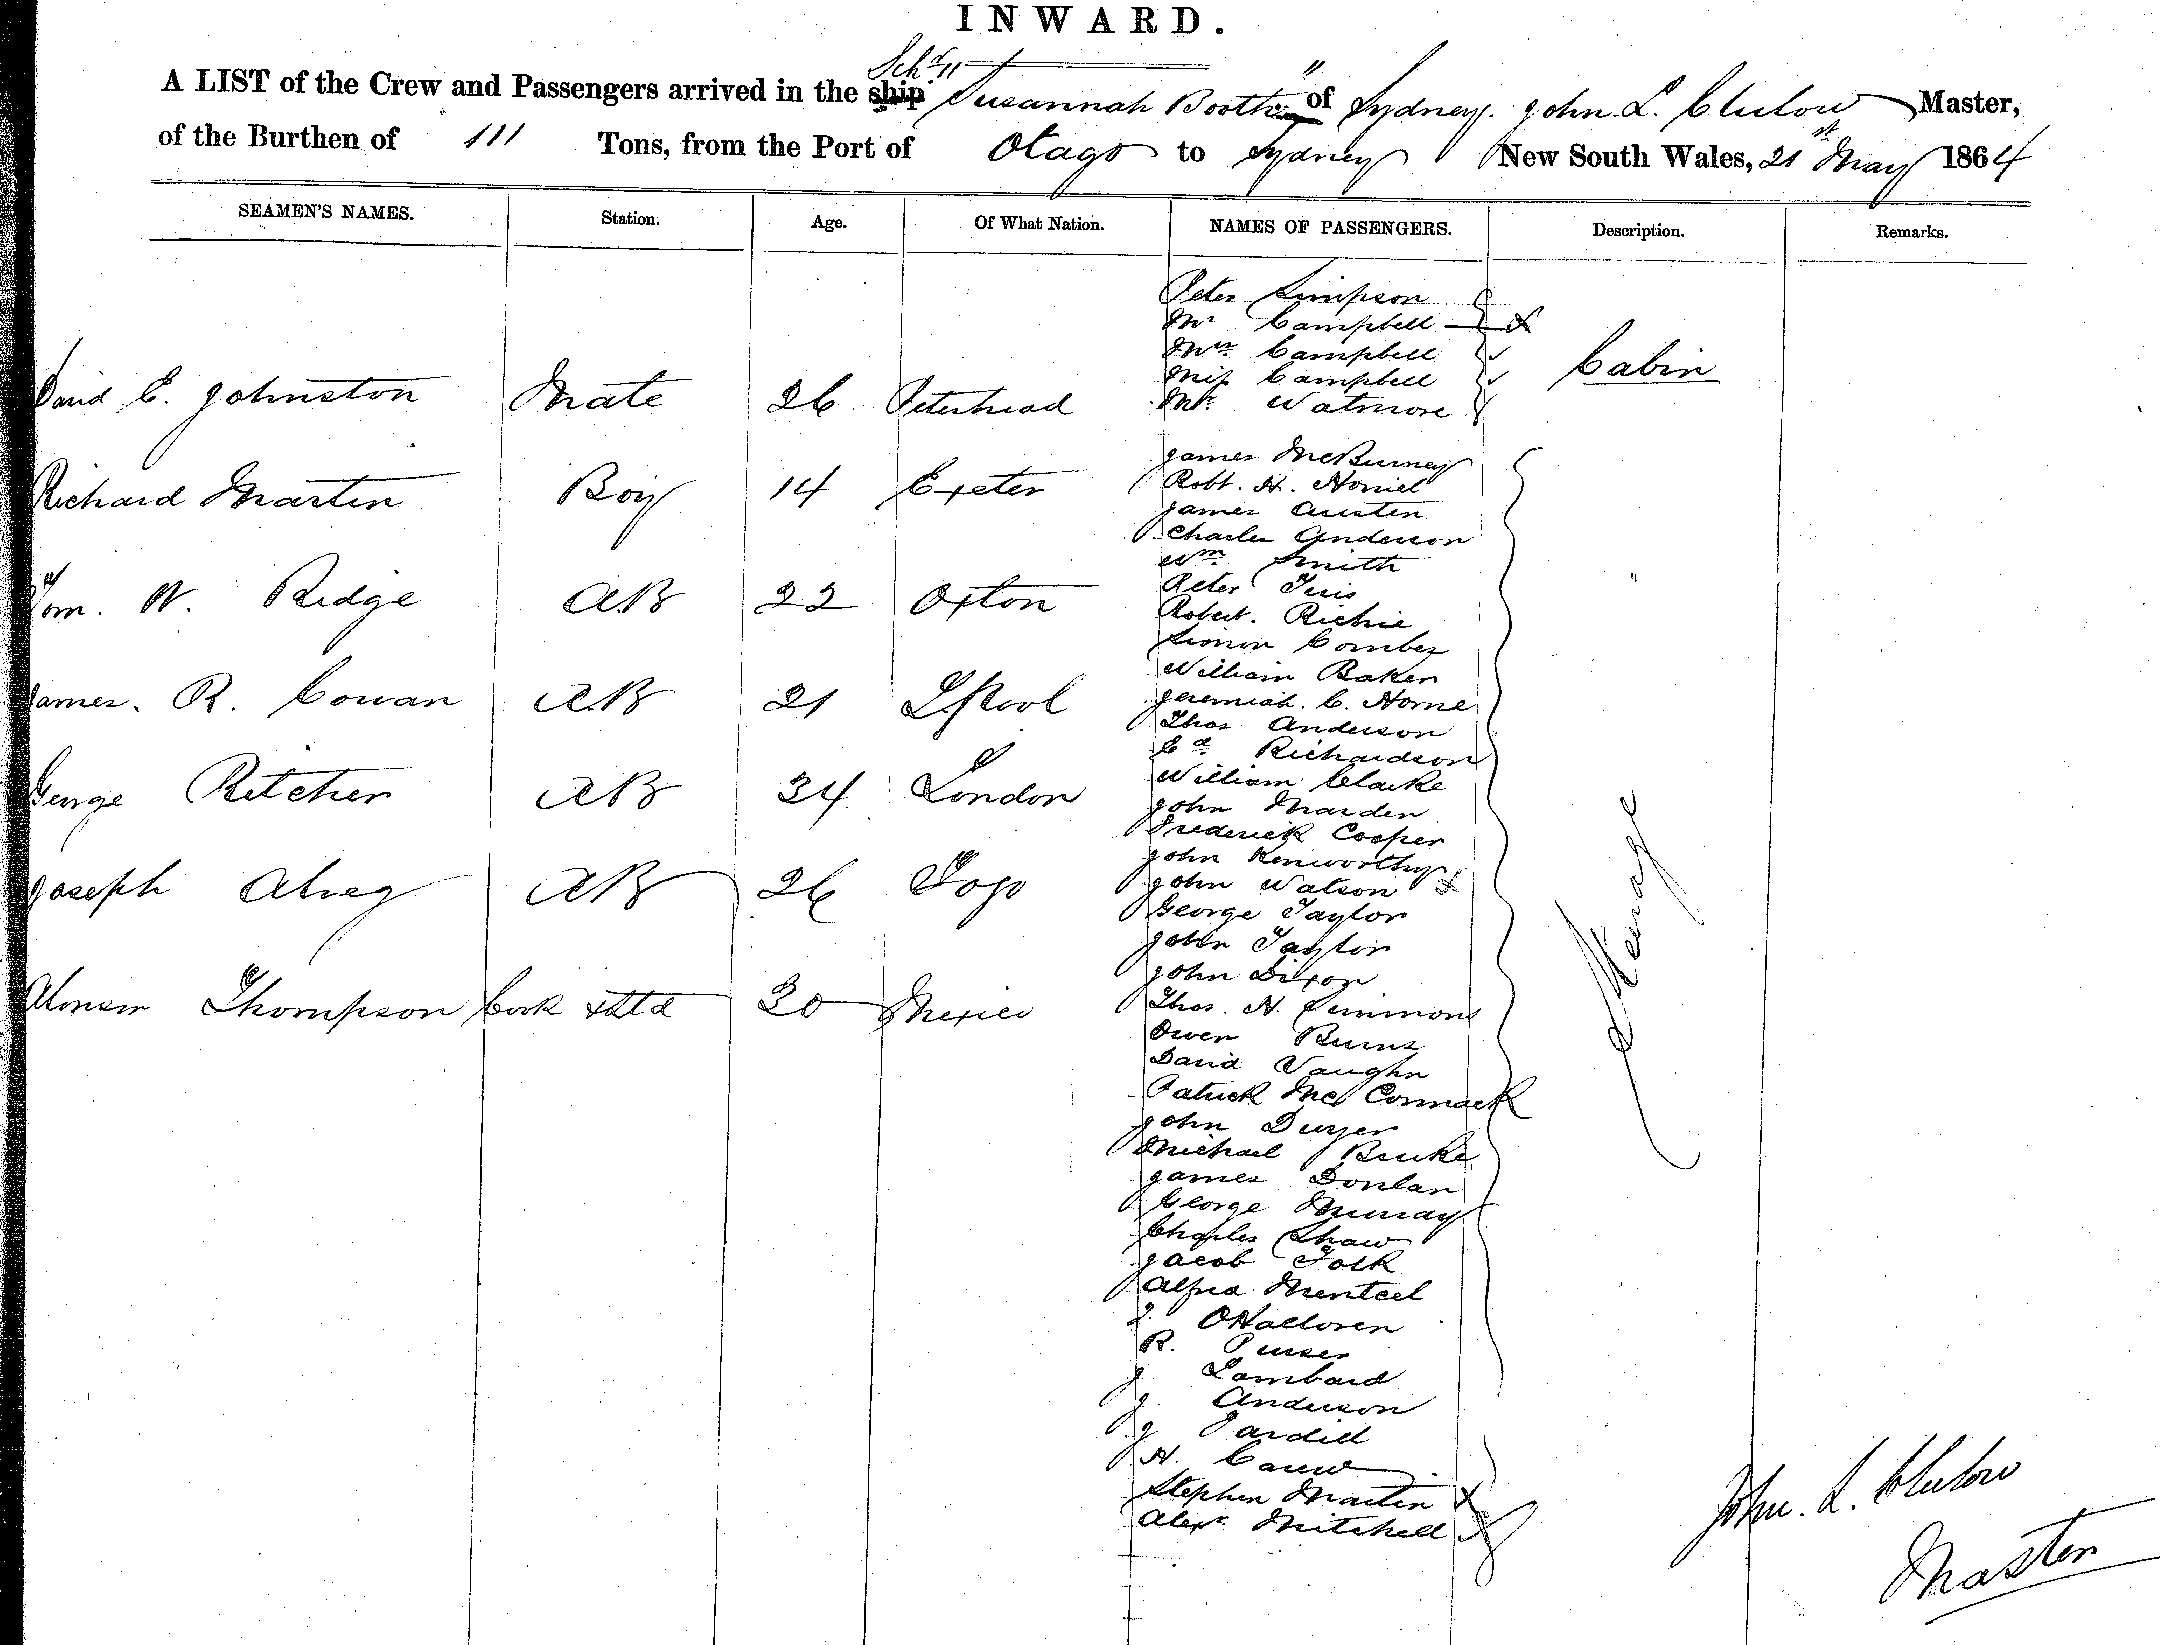 INWARD.
Schr "
A LIST of the Crew and Passengers arrived in the ship Susannah Booth" of Sydney. John L. Clulow Master,
of the Burthen of 111 Tons, from the Port of Otago to Sydney New South Wales, 21st May 1864
SEAMEN'S NAMES. Station. Age. Of What Nation. NAMES OF PASSENGERS. Description. Remarks.
Peter Simpson
Mr Campbell
Mrs Campbell
Miss Campbell Cabin
David E. Johnston Mate 26 Peterhead Mr Watmore
James McBurney
Richard Martin Boy 14 Exeter Robt. H.
James Austen
Charles Anderson
Wm Smith
Wm. W. Ridge AB 22 Oxton Peter
Robert. Richie
Simon Combes
William Baker
James. R. Cowan AB 21 L'pool Jeremiah. C. Horne
Thos Anderson
Ed Richardson
George Ritcher AB 34 London William Clarke
John Marden
Frederick Cooper
John Kenworthy
Joseph AB 26 John Watson
George Taylor
John Taylor
John Dixon
Thompson Cook & Std 30 Mexico Thos. H. Simmons
Owen Burns
David Vaughn
Patrick McCormack
John Dwyer
Michael Burke
James Donlan
George Murray
Charles Shaw
Jacob
Alfred Menteel
OHalloren
R. Purser
J Lombard
J. Anderson
J Pardill
H.
Stephen Martin
Alexr Mitchell
Steerage
John. L. Clulow
Master